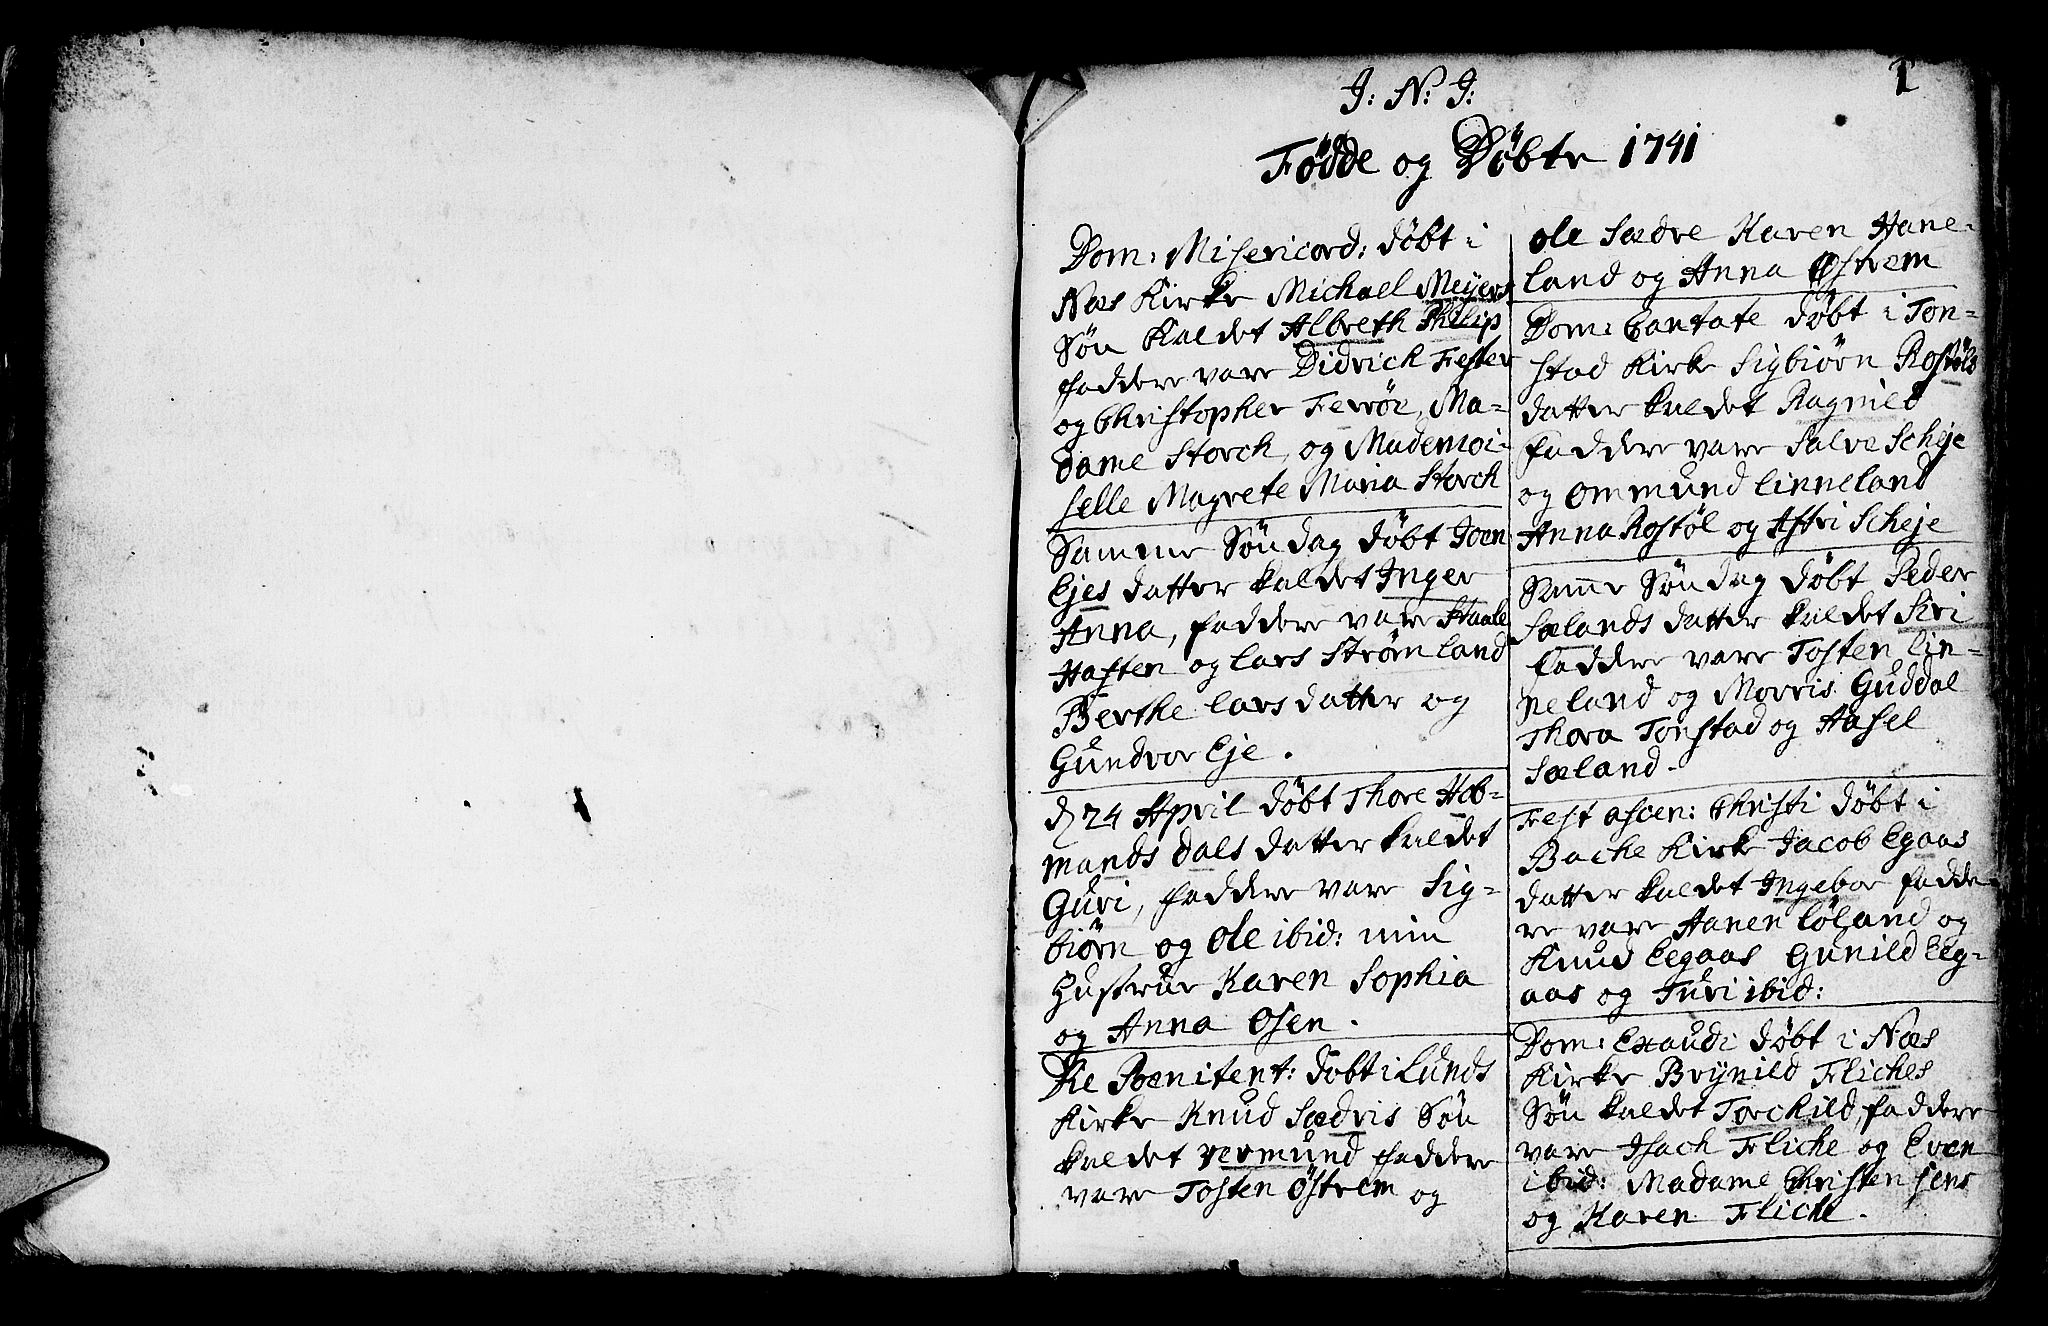 1
J: N: J:
Födde og Döbte 1741
Dom: Misericord: döbt i
Næs Kirke Michael Meyers
Sön kaldet Albreth Philip
faddere vare Didrich Fester
og Christopher Ferröe, Ma-
dame Storch, og Mademoi-
selle Magrete Maria Storch
Samme Söndag döbt Joen
Ejes datter kaldet Inger
Anna, faddere vare Staale
Haften og Lars Strömland
Berthe Larsdatter og
Gundvor Eje.
d 24 April döbt Thore Hob-
mands dals datter kaldet
Guri, faddere vare Sig-
biörn og Ole ibid: min
Hustrue Karen Sophia
og Anna Osen.
Die Poenitent: döbt i Lunds
Kirke Knud Sædvis Sön
kaldet Vermund faddere
vare Tosten Östrem og
Ole Sædve Karen Hane-
land og Anna Östrem
Dom: Cantate döbt i Ton-
stad Kirke Sigbiörn Rostöls
datter kaldet Ragnild
faddere vare Salve Scheje
og Ommund Linneland
Anna Rostöl og Astri Scheje
Samme Söndag döbt Peder
Sælands datter kaldet Siri
faddere vare Tosten Lin-
neland og Morris Guddal
Thora Tonstad og Aasel
Sæland.
Fest ascen: Christi döbt i
Bache Kirke Jacob Egaas
datter kaldet Ingebor fadde-
re vare Aanen Löland og
Knud Eegaas Gunild Eeg-
aas og Turi ibid:
Dom: Exaudi döbt i Næs
Kirke Brynild Fliches
Sön kaldet Torchild, faddere
vare Isach Fliche og Even
ibid: Madame Christensens
og Karen Fliche.